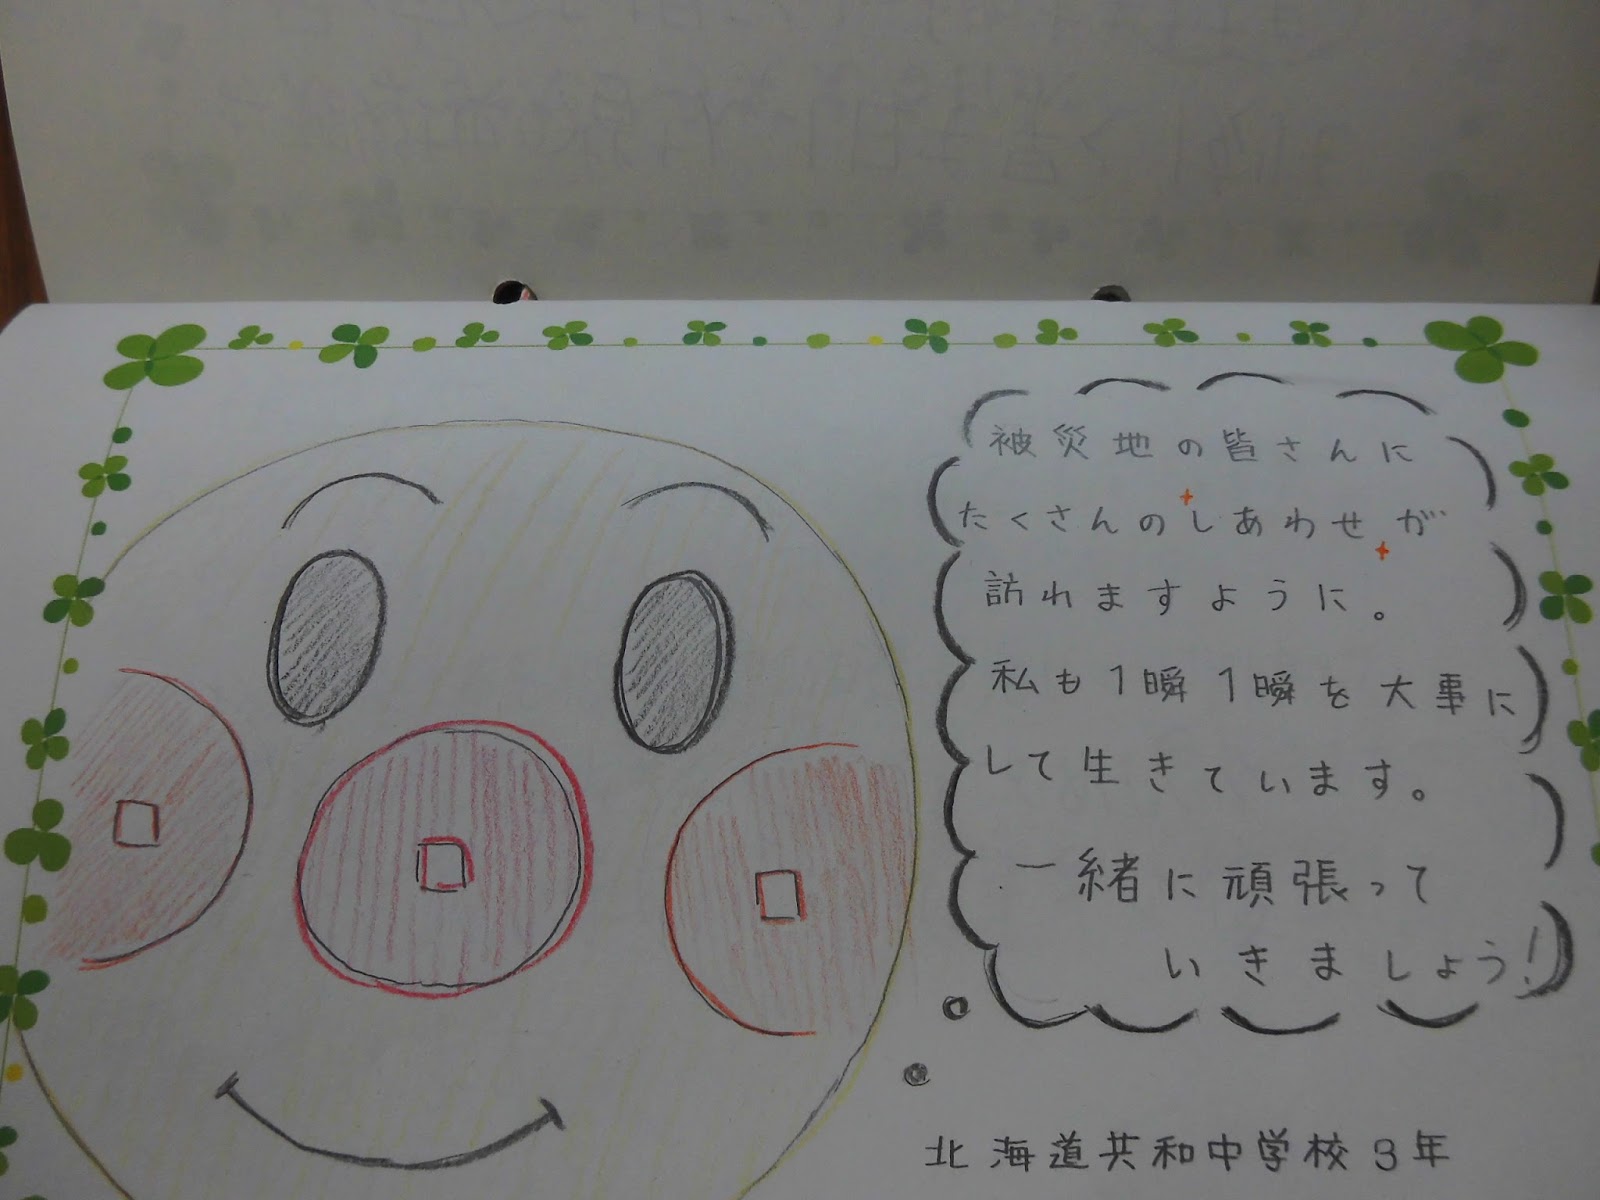 被災地の皆さんに
たくさんのしあわせが
訪れますように。
私も1瞬1瞬を大事に
して生きています。
一緒に頑張って
いきましょう!
北海道共和中学校3年